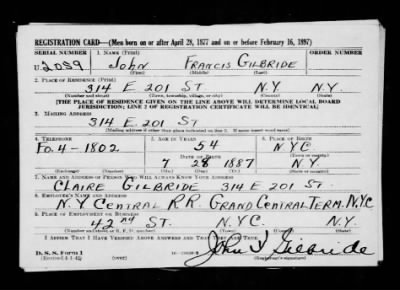 REGISTRATION CARD—(Men born on or after April 28, 1877 and on or before February 16, 1897)
SERIAL NUMBER 1. NAME (Print) ORDER NUMBER
U 2059 JOHN FRANCIS GILBRIDE
(First) (Middle) (Last)
2. PLACE OF RESIDENCE (Print)
314 E 201 ST N.Y. N.Y.
(Number and street) (Town, township, village, or city) (County) (State)
[THE PLACE OF RESIDENCE GIVEN ON THE LINE ABOVE WILL DETERMINE LOCAL BOARD
JURISDICTION; LINE 2 OF REGISTRATION CERTIFICATE WILL BE IDENTICAL]
3. MAILING ADDRESS
314 E. 201 ST
[Mailing address if other than place indicated on line 2. If same insert word same]
4. TELEPHONE 5. AGE IN YEARS 6. PLACE OF BIRTH
FO. 4-1802 54 N.Y.C.
DATE OF BIRTH (Town or county)
7 28 1887 N.Y.
(Exchange) (Number) (Mo.) (Day) (Yr.) (State or country)
7. NAME AND ADDRESS OF PERSON WHO WILL ALWAYS KNOW YOUR ADDRESS
CLAIRE GILBRIDE 314 E 201 ST.
8. EMPLOYER'S NAME AND ADDRESS
N.Y. CENTRAL R.R. GRAND CENTRAL TERM. N.Y.C.
9. PLACE OF EMPLOYMENT OR BUSINESS
42nd ST. N.Y.C. N.Y.
(Number and street or R. F. D. number) (Town) (County) (State)
I AFFIRM THAT I HAVE VERIFIED ABOVE ANSWERS AND THAT THEY ARE TRUE.
D. S. S. Form 1
(Revised 4-1-42) (over) John F Gilbride
(Registrant's signature)